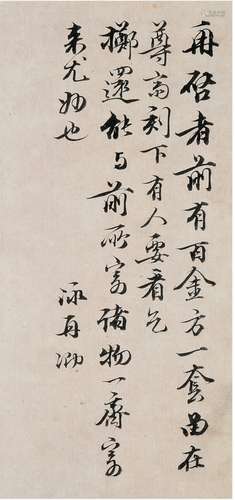 再啓者前有百金方一套留在
尊齋刻下有人要看乞
擲還能与前所寄諸物一齊寄
来尤妙也
泳再啓